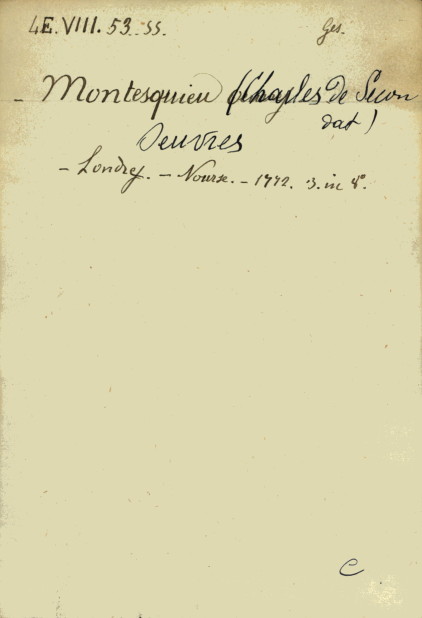 4E.VIII.53.55. Ges.
- Montesquieu (Charles de Secon
dat)
Oeuvres
- Londres. - Nourse. - 1772. 3. in 8º.
C